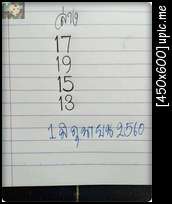 ล่าง
17
19
15
13
1 มิถุนายน 2560
[450x600] upic.me